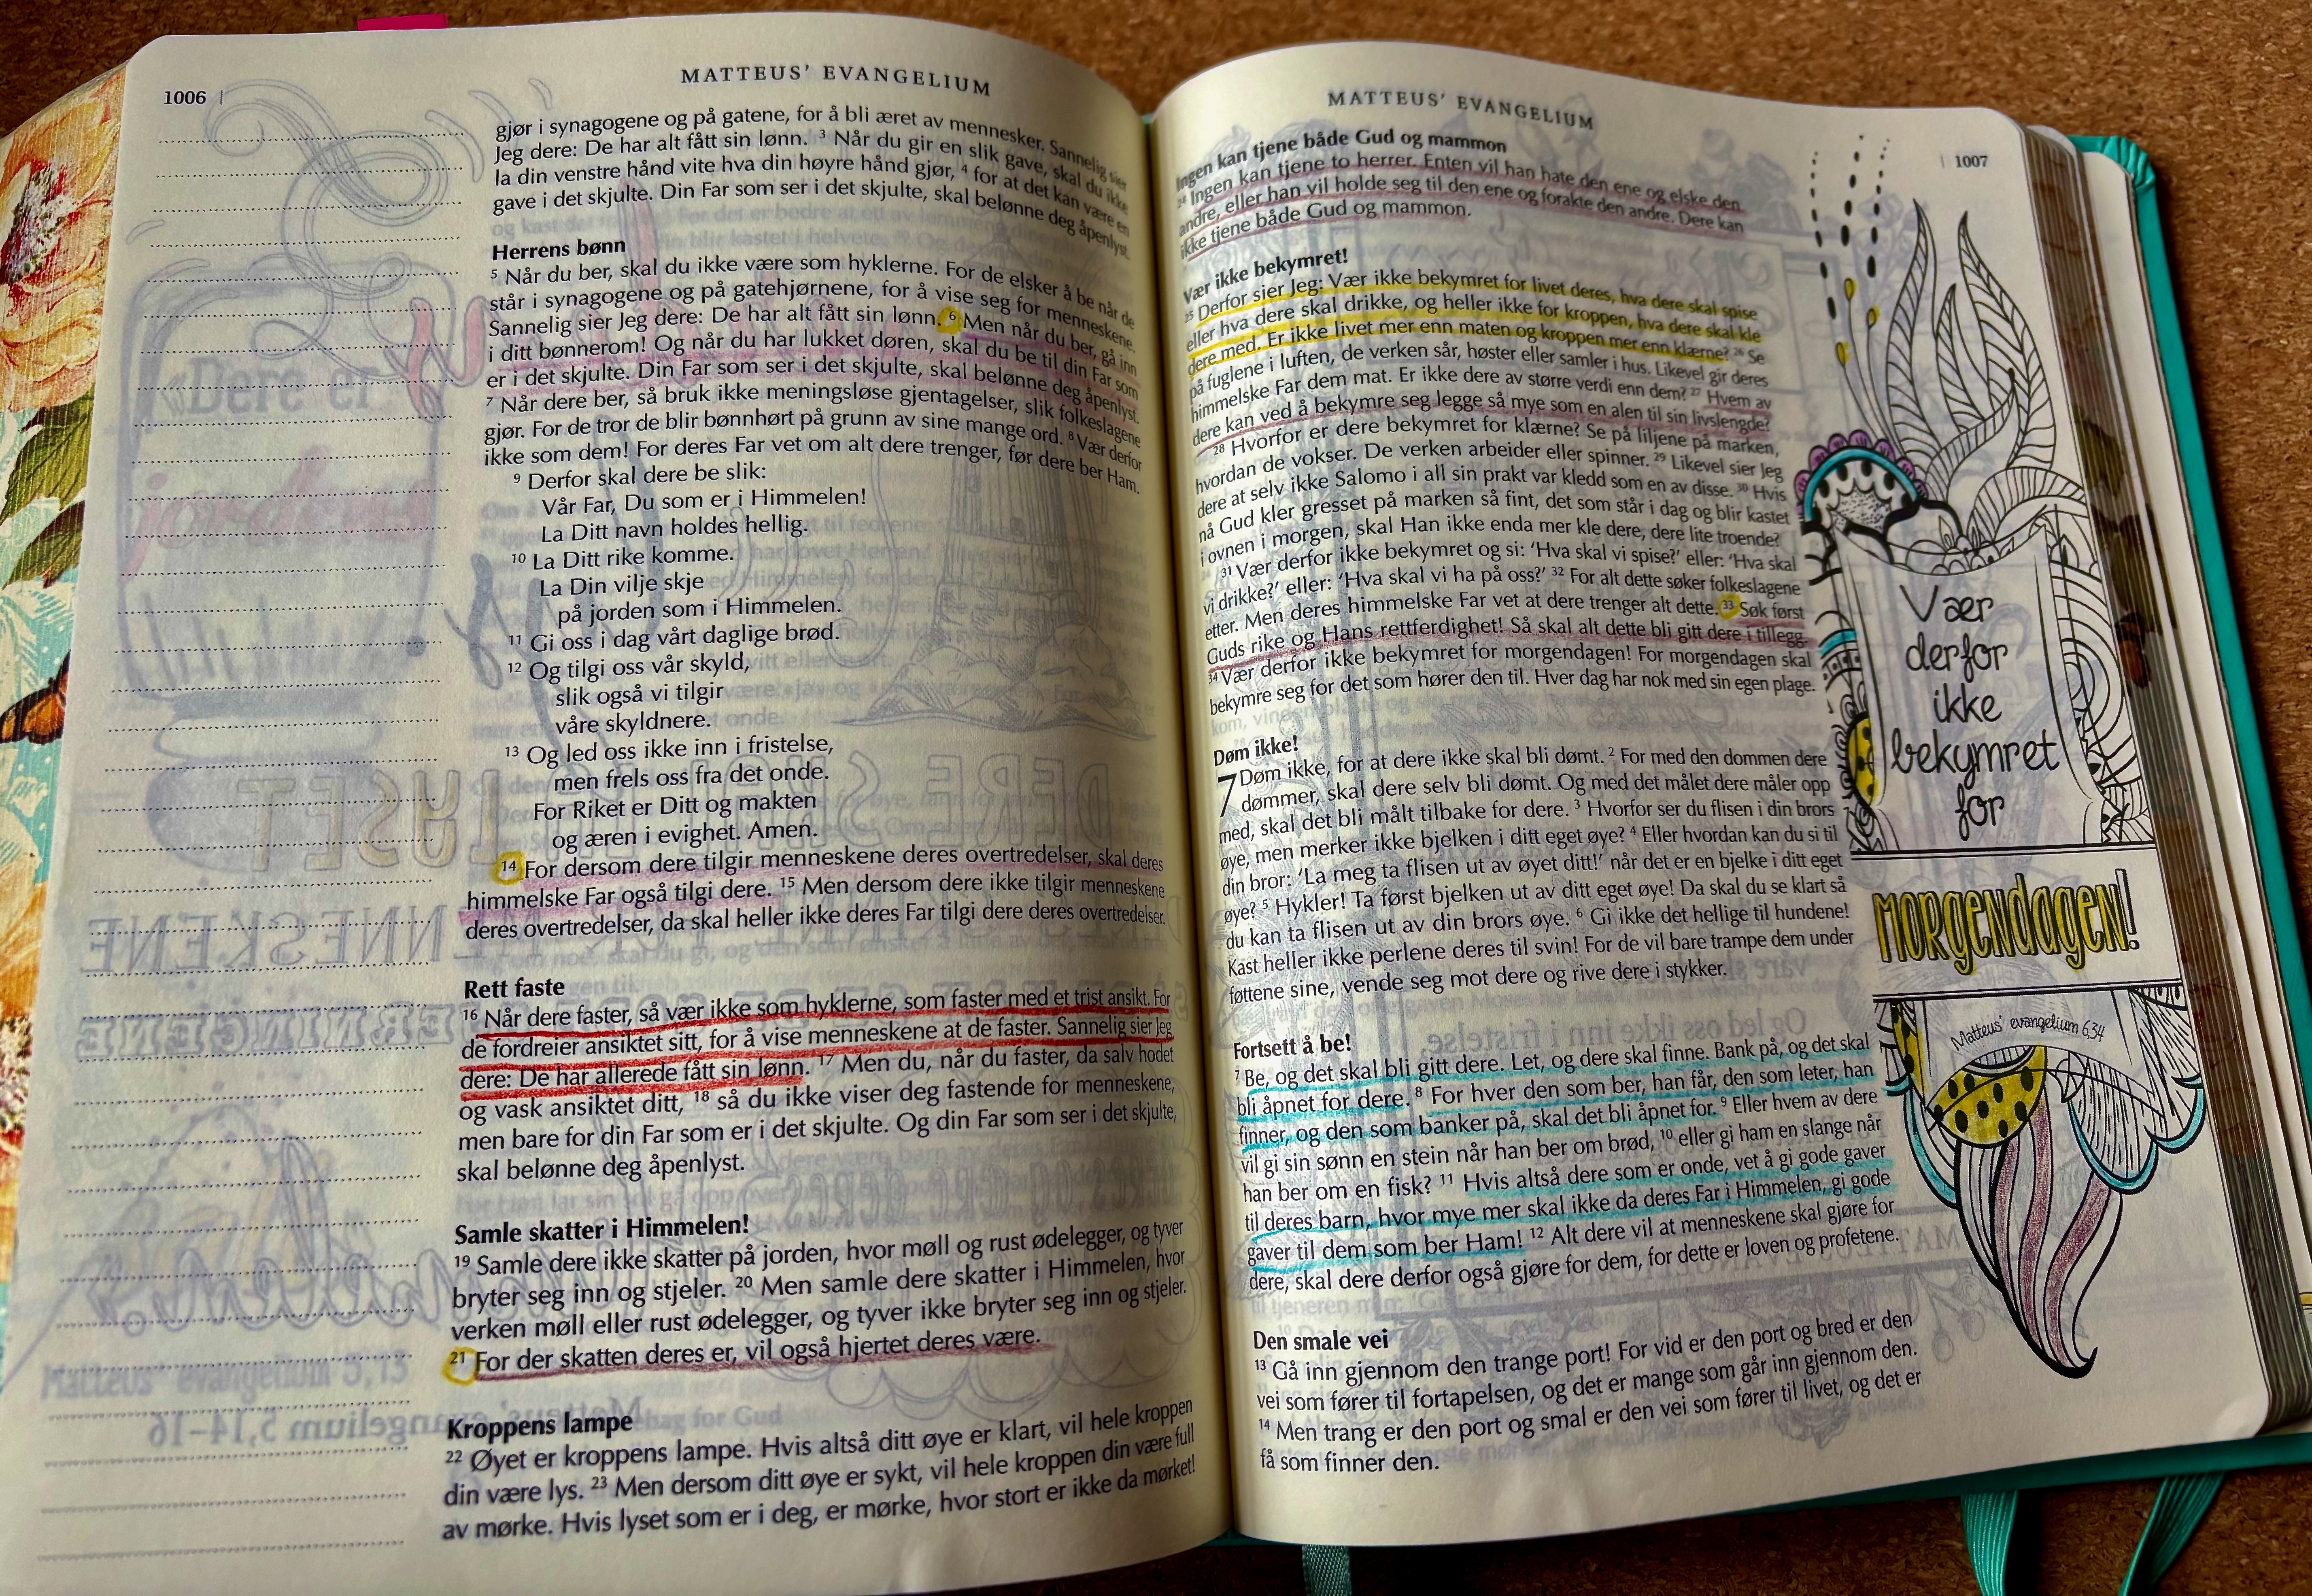 1006 |
MATTEUS’ EVANGELIUM
gjør i synagogene og på gatene, for å bli æret av mennesker. Sannelig sier
Jeg dere: De har alt fått sin lønn. 3 Når du gir en slik gave, skal du ikke
la din venstre hånd vite hva din høyre hånd gjør, 4 for at det kan være en
gave i det skjulte. Din Far som ser i det skjulte, skal belønne deg åpenlyst.
Herrens bønn
5 Når du ber, skal du ikke være som hyklerne. For de elsker å be når de
står i synagogene og på gatehjørnene, for å vise seg for menneskene.
Sannelig sier Jeg dere: De har alt fått sin lønn. 6 Men når du ber, gå inn
i ditt bønnerom! Og når du har lukket døren, skal du be til din Far som
er i det skjulte. Din Far som ser i det skjulte, skal belønne deg åpenlyst.
7 Når dere ber, så bruk ikke meningsløse gjentagelser, slik folkeslagene
gjør. For de tror de blir bønnhørt på grunn av sine mange ord. 8 Vær derfor
ikke som dem! For deres Far vet om alt dere trenger, før dere ber Ham.
9 Derfor skal dere be slik:
Vår Far, Du som er i Himmelen!
La Ditt navn holdes hellig.
10 La Ditt rike komme.
La Din vilje skje
på jorden som i Himmelen.
11 Gi oss i dag vårt daglige brød.
12 Og tilgi oss vår skyld,
slik også vi tilgir
våre skyldnere.
13 Og led oss ikke inn i fristelse,
men frels oss fra det onde.
For Riket er Ditt og makten
og æren i evighet. Amen.
14 For dersom dere tilgir menneskene deres overtredelser, skal deres
himmelske Far også tilgi dere. 15 Men dersom dere ikke tilgir menneskene
deres overtredelser, da skal heller ikke deres Far tilgi dere deres overtredelser.
Rett faste
16 Når dere faster, så vær ikke som hyklerne, som faster med et trist ansikt. For
de fordreier ansiktet sitt, for å vise menneskene at de faster. Sannelig sier Jeg
dere: De har allerede fått sin lønn. 17 Men du, når du faster, da salv hodet
og vask ansiktet ditt, 18 så du ikke viser deg fastende for menneskene,
men bare for din Far som er i det skjulte. Og din Far som ser i det skjulte,
skal belønne deg åpenlyst.
Samle skatter i Himmelen!
19 Samle dere ikke skatter på jorden, hvor møll og rust ødelegger, og tyver
bryter seg inn og stjeler. 20 Men samle dere skatter i Himmelen, hvor
verken møll eller rust ødelegger, og tyver ikke bryter seg inn og stjeler.
21 For der skatten deres er, vil også hjertet deres være.
Kroppens lampe
22 Øyet er kroppens lampe. Hvis altså ditt øye er klart, vil hele kroppen
din være lys. 23 Men dersom ditt øye er sykt, vil hele kroppen din være full
av mørke. Hvis lyset som er i deg, er mørke, hvor stort er ikke da mørket!
MATTEUS’ EVANGELIUM
| 1007
Ingen kan tjene både Gud og mammon
24 Ingen kan tjene to herrer. Enten vil han hate den ene og elske den
andre, eller han vil holde seg til den ene og forakte den andre. Dere kan
ikke tjene både Gud og mammon.
Vær ikke bekymret!
25 Derfor sier Jeg: Vær ikke bekymret for livet deres, hva dere skal spise
eller hva dere skal drikke, og heller ikke for kroppen, hva dere skal kle
dere med. Er ikke livet mer enn maten og kroppen mer enn klærne? 26 Se
på fuglene i luften, de verken sår, høster eller samler i hus. Likevel gir deres
himmelske Far dem mat. Er ikke dere av større verdi enn dem? 27 Hvem av
dere kan ved å bekymre seg legge så mye som en alen til sin livslengde?
28 Hvorfor er dere bekymret for klærne? Se på liljene på marken,
hvordan de vokser. De verken arbeider eller spinner. 29 Likevel sier Jeg
dere at selv ikke Salomo i all sin prakt var kledd som en av disse. 30 Hvis
nå Gud kler gresset på marken så fint, det som står i dag og blir kastet
i ovnen i morgen, skal Han ikke enda mer kle dere, dere lite troende?
31 Vær derfor ikke bekymret og si: ‘Hva skal vi spise?’ eller: ‘Hva skal
vi drikke?’ eller: ‘Hva skal vi ha på oss?’ 32 For alt dette søker folkeslagene
etter. Men deres himmelske Far vet at dere trenger alt dette. 33 Søk først
Guds rike og Hans rettferdighet! Så skal alt dette bli gitt dere i tillegg.
34 Vær derfor ikke bekymret for morgendagen! For morgendagen skal
bekymre seg for det som hører den til. Hver dag har nok med sin egen plage.
Døm ikke!
7 Døm ikke, for at dere ikke skal bli dømt. 2 For med den dommen dere
dømmer, skal dere selv bli dømt. Og med det målet dere måler opp
med, skal det bli målt tilbake for dere. 3 Hvorfor ser du flisen i din brors
øye, men merker ikke bjelken i ditt eget øye? 4 Eller hvordan kan du si til
din bror: ‘La meg ta flisen ut av øyet ditt!’ når det er en bjelke i ditt eget
øye? 5 Hykler! Ta først bjelken ut av ditt eget øye! Da skal du se klart så
du kan ta flisen ut av din brors øye. 6 Gi ikke det hellige til hundene!
Kast heller ikke perlene deres til svin! For de vil bare trampe dem under
føttene sine, vende seg mot dere og rive dere i stykker.
Fortsett å be!
7 Be, og det skal bli gitt dere. Let, og dere skal finne. Bank på, og det skal
bli åpnet for dere. 8 For hver den som ber, han får, den som leter, han
finner, og den som banker på, skal det bli åpnet for. 9 Eller hvem av dere
vil gi sin sønn en stein når han ber om brød, 10 eller gi ham en slange når
han ber om en fisk? 11 Hvis altså dere som er onde, vet å gi gode gaver
til deres barn, hvor mye mer skal ikke da deres Far i Himmelen, gi gode
gaver til dem som ber Ham! 12 Alt dere vil at menneskene skal gjøre for
dere, skal dere derfor også gjøre for dem, for dette er loven og profetene.
Den smale vei
13 Gå inn gjennom den trange port! For vid er den port og bred er den
vei som fører til fortapelsen, og det er mange som går inn gjennom den.
14 Men trang er den port og smal er den vei som fører til livet, og det er
få som finner den.
Vær
derfor
ikke
bekymret
for
MORGENDAGEN!
Matteus’ evangelium 6,34